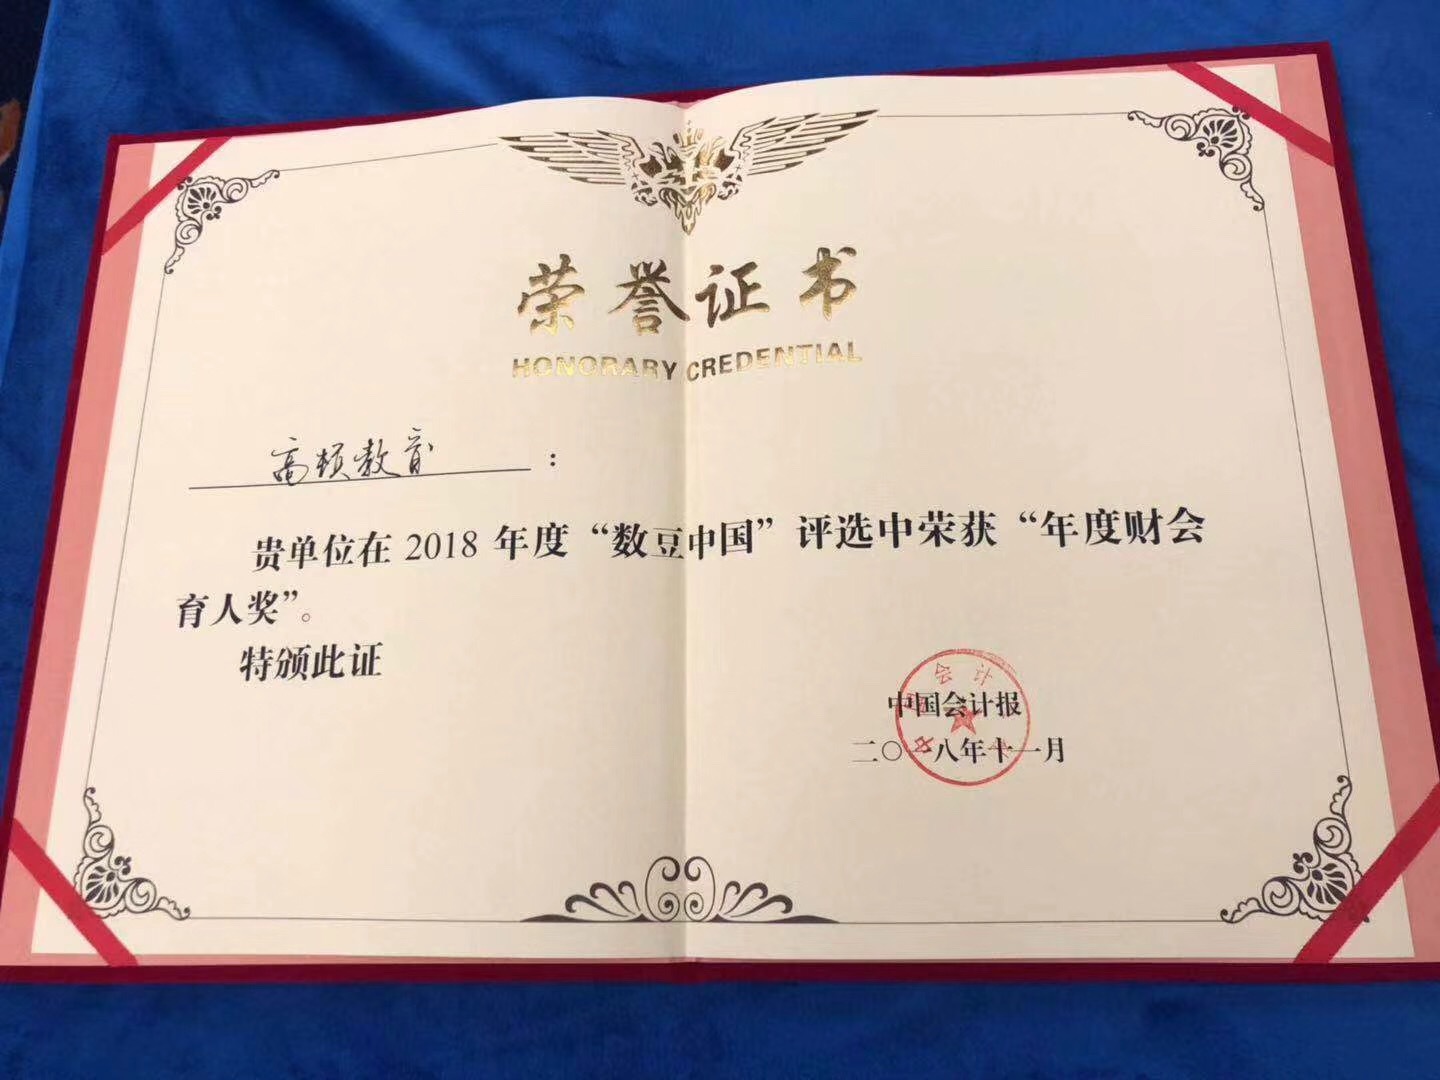 荣誉证书
HONORARY CREDENTIAL
高顿教育：
贵单位在 2018 年度“数豆中国”评选中荣获“年度财会
育人奖”。
特颁此证
中国会计报
二〇一八年十一月